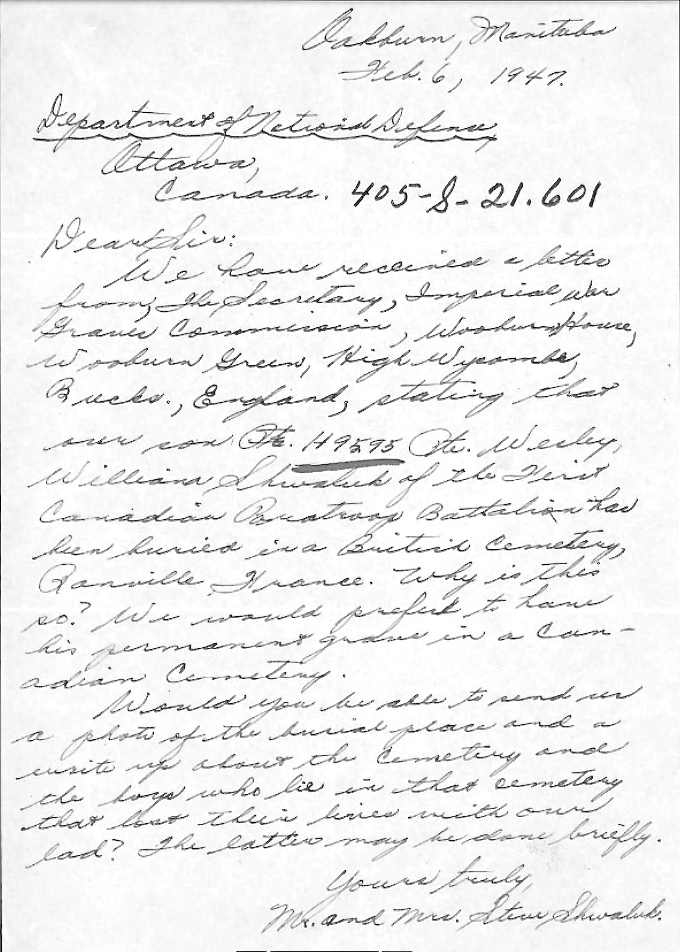 Oakburn, Manitoba
Feb. 6, 1947.
Department of National Defense,
Ottawa,
Canada. 405-S-21.601
Dear Sir:
We have received a letter
from, The Secretary, Imperial War
Graves Commission, Wooburn House,
Wooburn Green, High Wycombe,
Bucks., England, stating that
our son Pte. H9595 Pte. Wesley,
William Shwaluk of the First
Canadian Paratroop Battalion has
been buried in a British Cemetery,
Ranville, France. Why is this
so? We would prefer to have
his permanent grave in a Can-
adian Cemetery.
Would you be able to send us
a photo of the burial place and a
write up about the Cemetery and
the boys who lie in that cemetery
that lost their lives with our
lad? The latter may be done briefly.
Yours truly,
Mr. and Mrs. Steve Shwaluk.